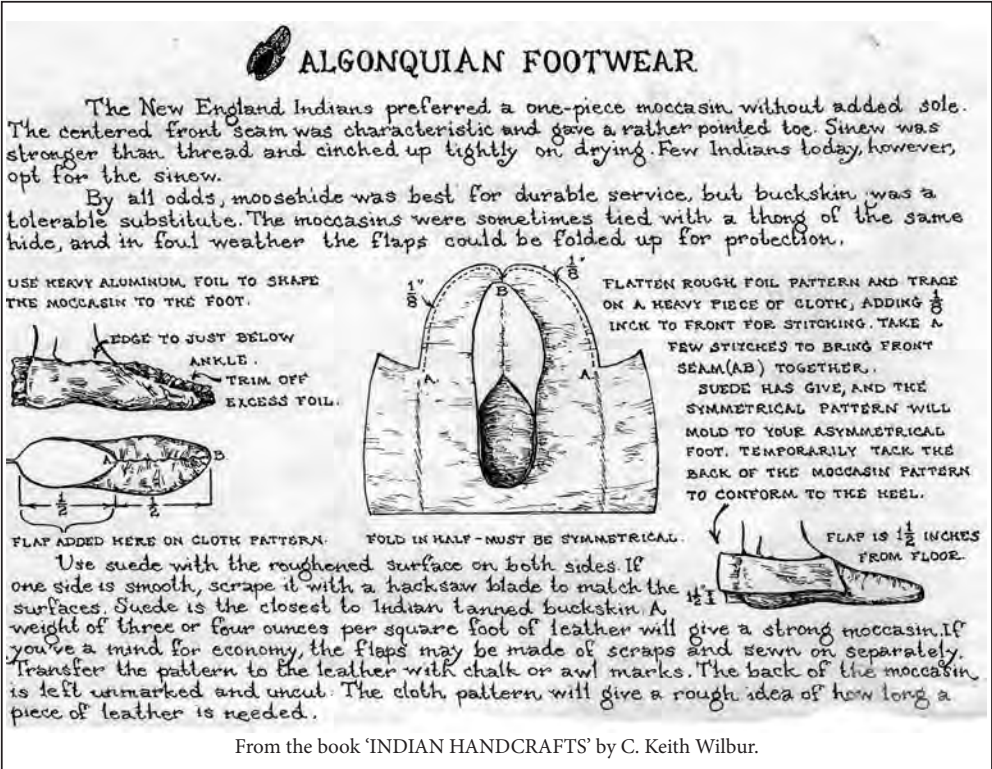 ALGONQUIAN FOOTWEAR
The New England Indians preferred a one-piece moccasin without added sole.
The centered front seam was characteristic and gave a rather pointed toe. Sinew was
stronger than thread and cinched up tightly on drying. Few Indians today, however,
opt for the sinew.
By all odds, moosehide was best for durable service, but buckskin was a
tolerable substitute. The moccasins were sometimes tied with a thong of the same
hide, and in foul weather the flaps could be folded up for protection.
USE HEAVY ALUMINUM FOIL TO SHAPE
THE MOCCASIN TO THE FOOT.
EDGE TO JUST BELOW
ANKLE.
TRIM OFF
EXCESS FOIL.
A
B
1/2
1/2
FLAP ADDED HERE ON CLOTH PATTERN.
1/8"
1/8"
B
A
A
FOLD IN HALF - MUST BE SYMMETRICAL.
FLATTEN ROUGH FOIL PATTERN AND TRACE
ON A HEAVY PIECE OF CLOTH, ADDING 1/8
INCH TO FRONT FOR STITCHING. TAKE A
FEW STITCHES TO BRING FRONT
SEAM (AB) TOGETHER.
SUEDE HAS GIVE, AND THE
SYMMETRICAL PATTERN WILL
MOLD TO YOUR ASYMMETRICAL
FOOT. TEMPORARILY TACK THE
BACK OF THE MOCCASIN PATTERN
TO CONFORM TO THE HEEL.
FLAP IS 1 1/2 INCHES
FROM FLOOR.
1 1/2"
Use suede with the roughened surface on both sides. If
one side is smooth, scrape it with a hacksaw blade to match the
surfaces. Suede is the closest to Indian tanned buckskin. A
weight of three or four ounces per square foot of leather will give a strong moccasin. If
you've a mind for economy, the flaps may be made of scraps and sewn on separately.
Transfer the pattern to the leather with chalk or awl marks. The back of the moccasin
is left unmarked and uncut. The cloth pattern will give a rough idea of how long a
piece of leather is needed.
From the book 'INDIAN HANDCRAFTS' by C. Keith Wilbur.